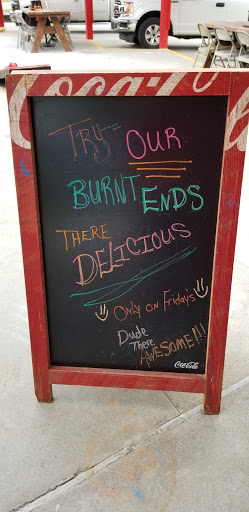 Coca-Cola
TRY OUR
BURNT ENDS
THERE
DELICIOUS
Only on Friday's
Dude
There
AWESOME!!!
Coca-Cola